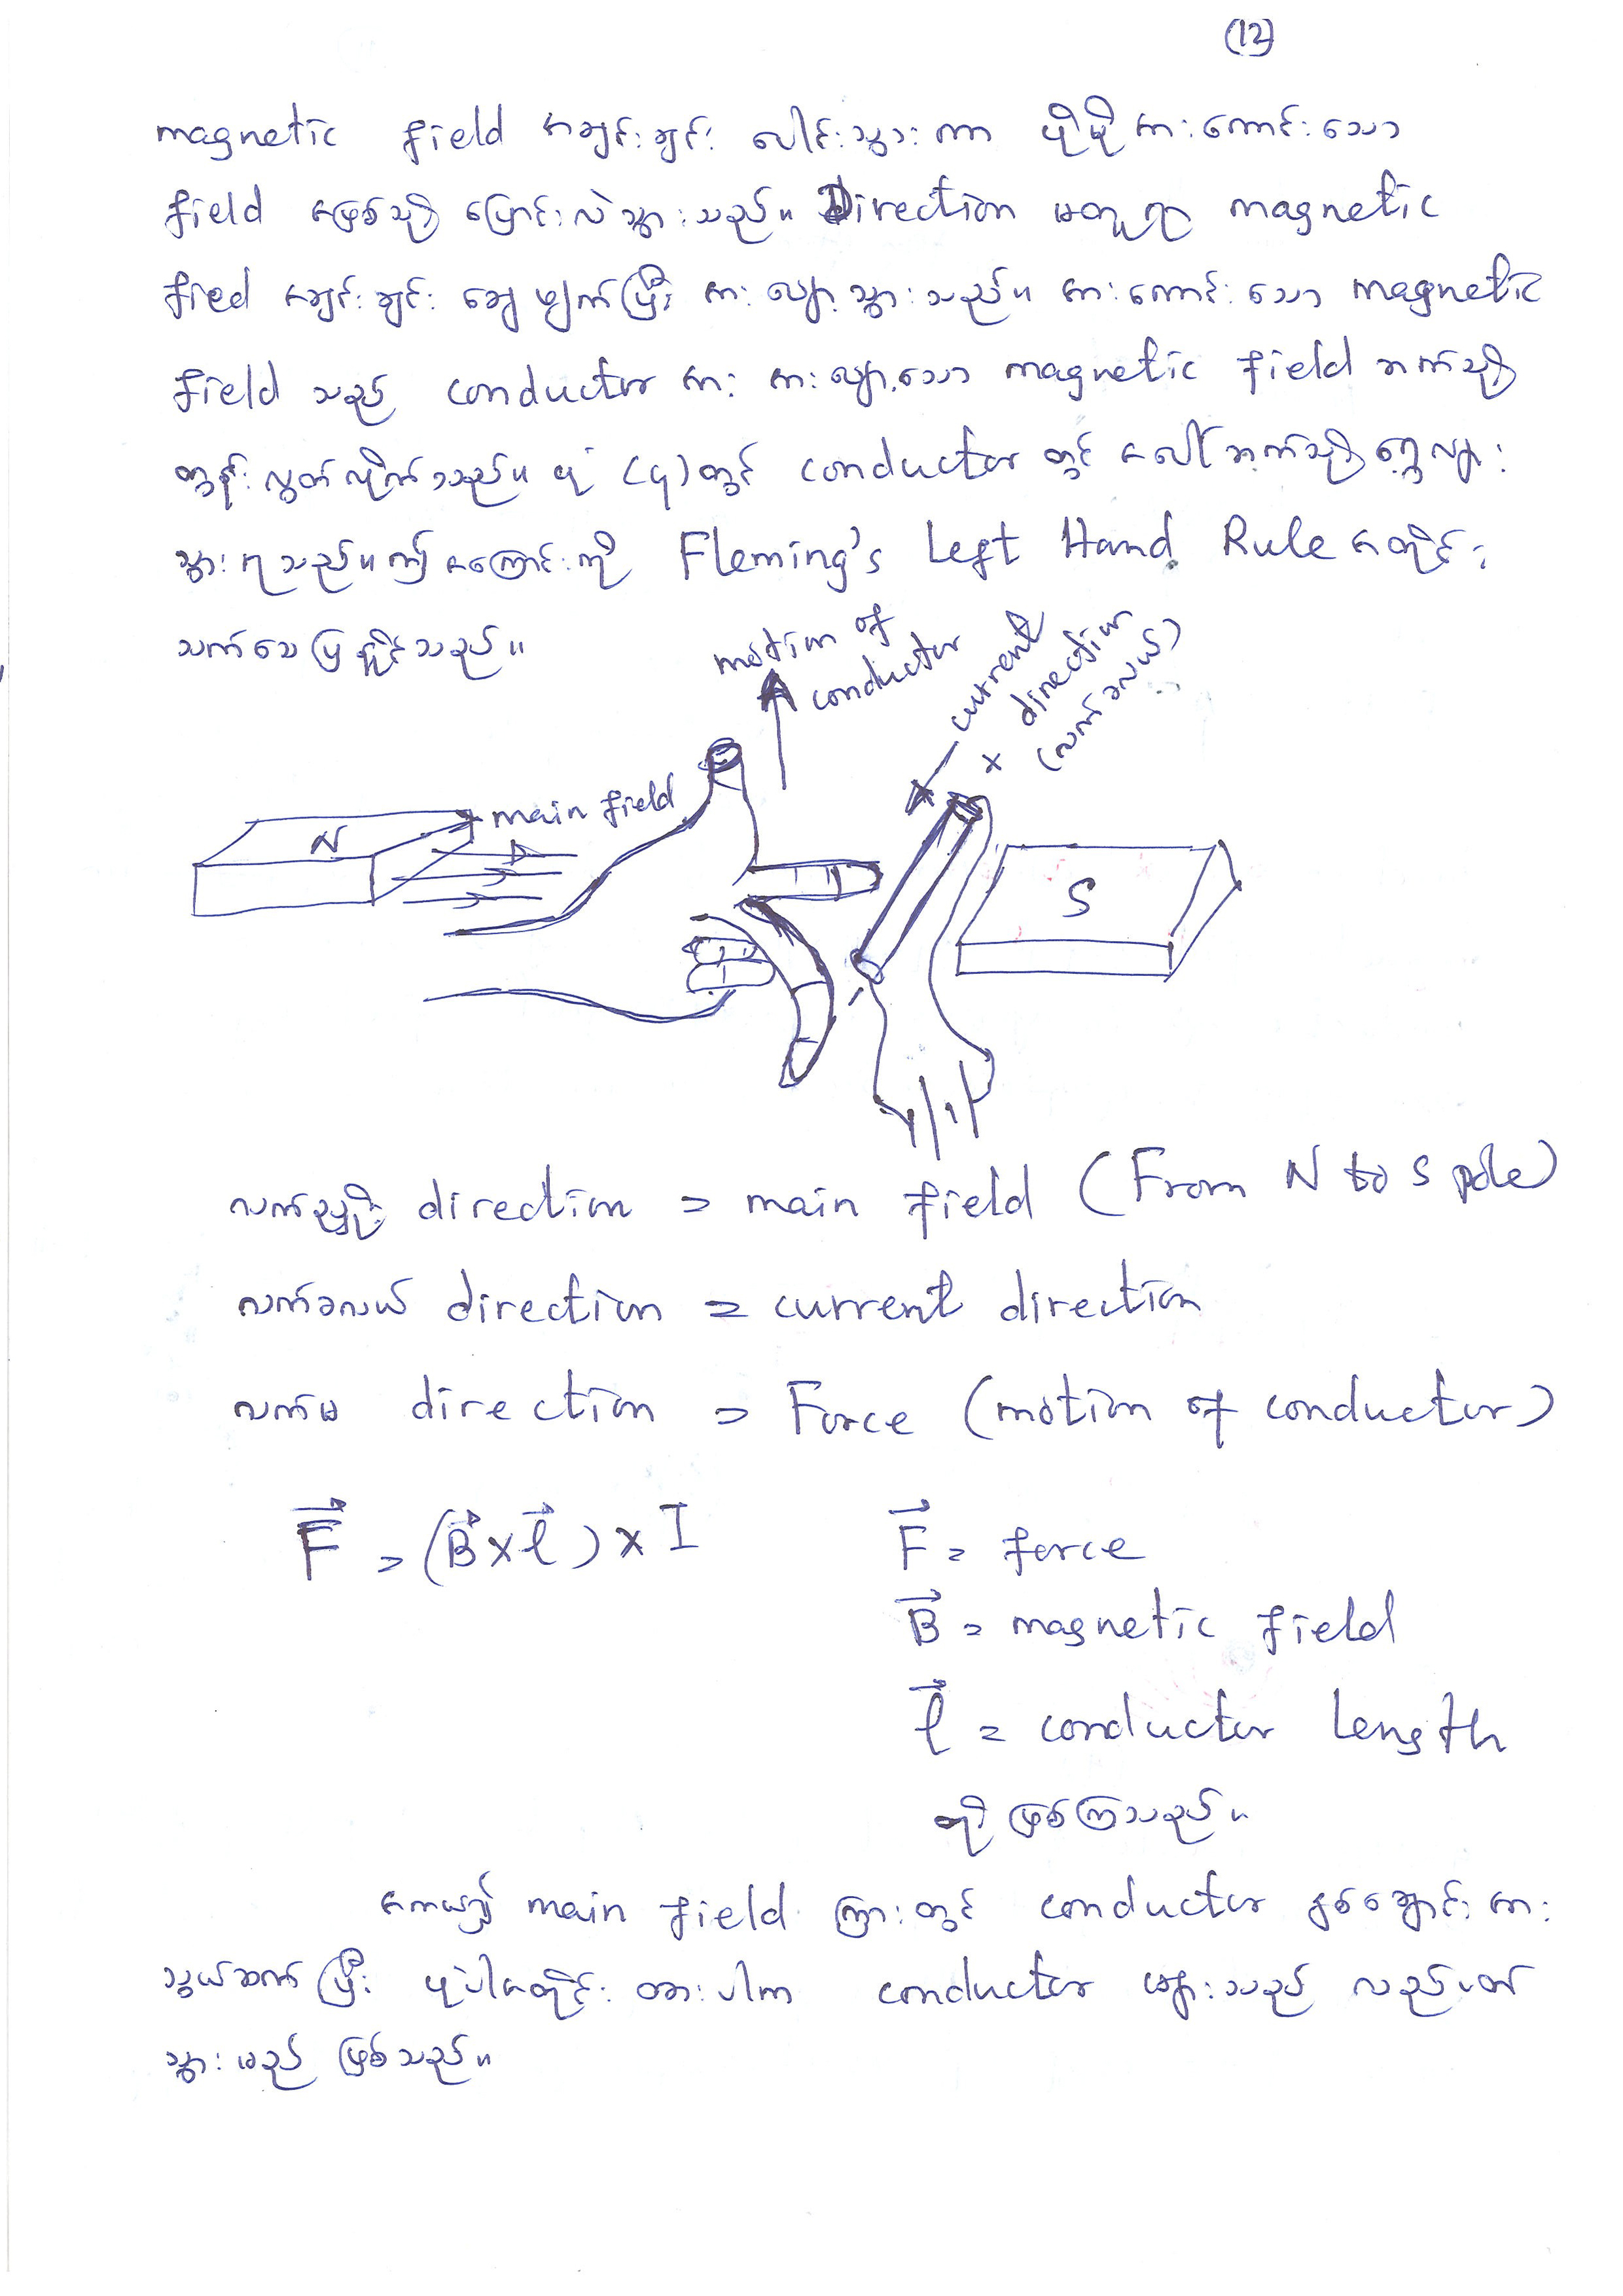 (12)
magnetic field အချင်းချင်း ပေါင်းသွားကာ ပိုမို အားကောင်းသော
field အဖြစ်သို့ ပြောင်းလဲသွားသည်။ Direction မတူရာ magnetic
fied အချင်းချင်း ချေဖျက်ပြီး အားလျော့သွားသည်။ အားကောင်းသော magnetic
field သည် conductor အား အားလျော့သော magnetic field ဘက်သို့
တွန်းလွှတ်လိုက်သည်။ ပုံ (၄)တွင် conductor တွင် အပေါ်ဘက်သို့ ရွေ့လျား
သွားရသည်။ ဤအကြောင်းကို Fleming's Left Hand Rule အတိုင်း
သက်သေပြနိုင်သည်။
motion of
conductor
current
direction
(လက်ခလယ်)
N
main field
S
လက်ညှိုး direction = main field (From N to S pole)
လက်ခလယ် direction = current direction
လက်မ direction = Force (motion of conductor)
F⃗ = (B⃗ × ℓ⃗) × I
F⃗ = force
B⃗ = magnetic field
ℓ⃗ = conductor length
တို့ ဖြစ်ကြသည်။
အကယ်၍ main field ကြားတွင် conductor နှစ်ချောင်းအား
သွယ်ဆက်ပြီး ပုံပါအတိုင်း ထားပါက conductor များသည် လည်ပတ်
သွားမည် ဖြစ်သည်။